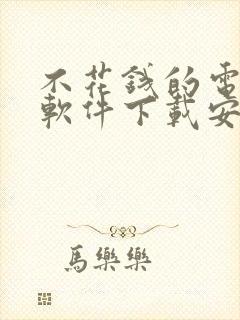 不花錢的電
軟件下載安
馬樂樂